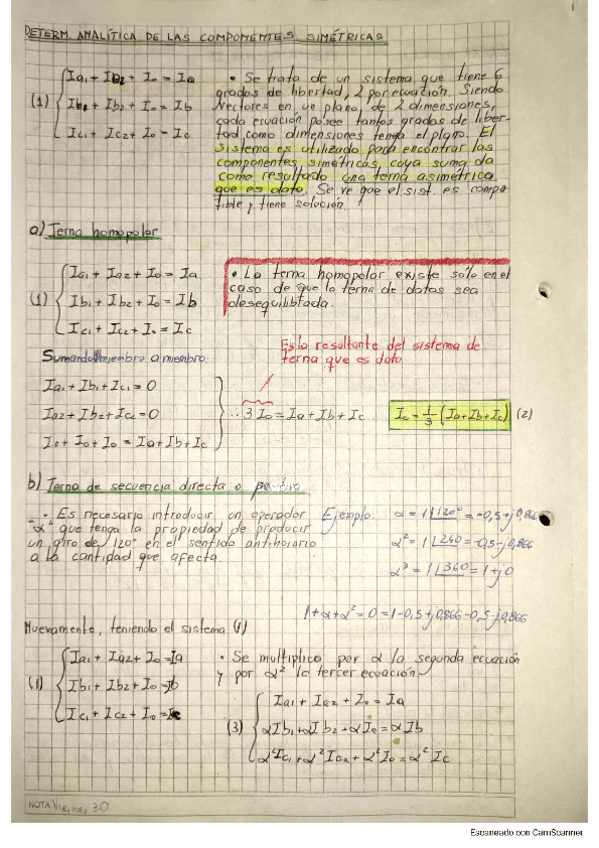 DETERM. ANALÍTICA DE LAS COMPONENTES SIMÉTRICAS
(1) { Ia1 + Ib2 + Io = Ia
Ib1 + Ib2 + Io = Ib
Ic1 + Ic2 + Io = Ic
• Se trata de un sistema que tiene 6
grados de libertad, 2 por ecuación. Siendo
Vectores en un plano, de 2 dimensiones,
cada ecuación posee tantos grados de liber-
tad como dimensiones tenga el plano. El
sistema es utilizado para encontrar las
componentes simétricas, cuya suma da
como resultado una terna asimétrica
que es dato. Se ve que el sist. es compa
tible y tiene solución.
a) Terna homopolar
(1) { Ia1 + Ia2 + Io = Ia
Ib1 + Ib2 + Io = Ib
Ic1 + Ic2 + Io = Ic
• La terna homopolar existe sólo en el
caso de que la terna de datos sea
desequilibrada.
Sumando miembro a miembro:
Es la resultante del sistema de
terna que es dato.
Ia1 + Ib1 + Ic1 = 0
Ia2 + Ib2 + Ic2 = 0
Io + Io + Io = Ia + Ib + Ic
} ∴ 3 Io = Ia + Ib + Ic
Io = 1/3 (Ia + Ib + Ic) (2)
b) Terna de secuencia directa o positiva
• Es necesario introducir un operador
"α" que tenga la propiedad de producir
un giro de 120° en el sentido antihorario
a la cantidad que afecta.
Ejemplo: α = 1∠120° = -0,5 + j0,866
α² = 1∠240 = -0,5 - j0,866
α³ = 1∠360 = 1 + j0
1 + α + α² = 0 = 1 - 0,5 + j0,866 - 0,5 - j0,866
Nuevamente, teniendo el sistema (1)
(1) { Ia1 + Ia2 + Io = Ia
Ib1 + Ib2 + Io = Ib
Ic1 + Ic2 + Io = Ic
• Se multiplica por α la segunda ecuación
y por α² la tercer ecuación.
(3) { Ia1 + Ia2 + Io = Ia
αIb1 + αIb2 + αIo = αIb
α²Ic1 + α²Ic2 + α²Io = α²Ic
NOTA Viernes 30
Escaneado con CamScanner